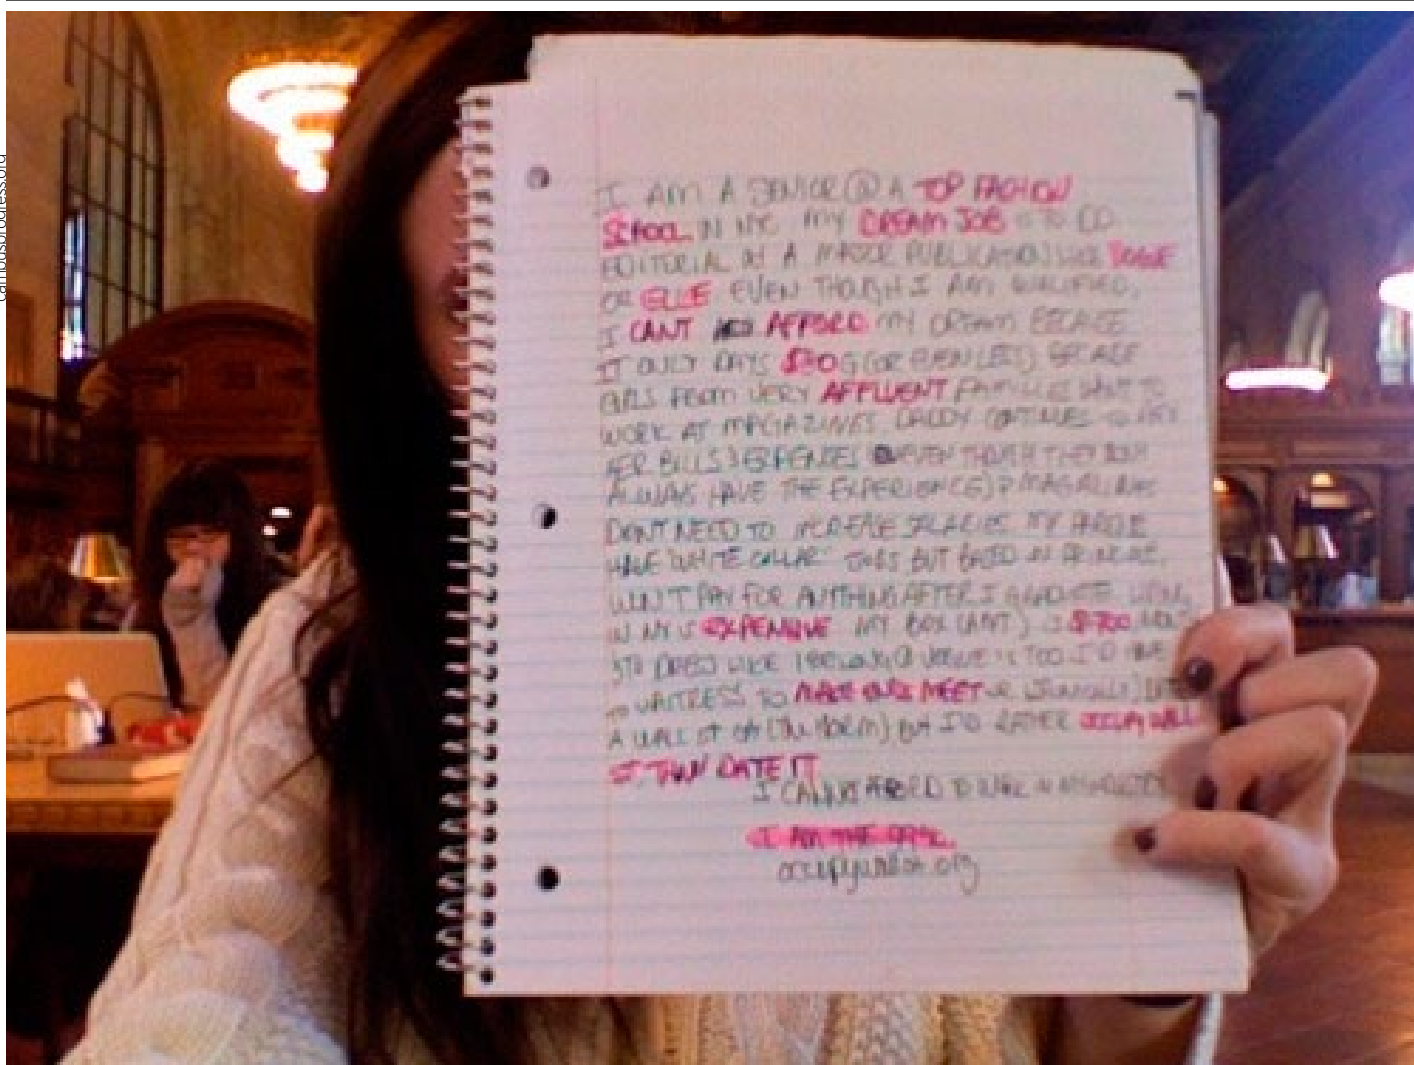 campusprogress.org
I AM A SENIOR @ A TOP FASHION
SCHOOL IN NYC MY DREAM JOB IS TO DO
EDITORIAL AT A MAJOR PUBLICATION LIKE VOGUE
OR ELLE EVEN THOUGH I AM QUALIFIED,
I CANT AFFORD MY DREAM BECAUSE
IT ONLY PAYS $30G (OR EVEN LESS) BECAUSE
GIRLS FROM VERY AFFLUENT FAMILIES WANT TO
WORK AT MAGAZINES DADDY CONTINUES TO PAY
HER BILLS & EXPENSES EVEN THOUGH THEY DON'T
ALWAYS HAVE THE EXPERIENCE) MAGAZINES
DONT NEED TO INCREASE SALARIES MY PARENTS
HAVE "WHITE COLLAR" JOBS BUT BASED ON PRINCIPLE,
WON'T PAY FOR ANYTHING AFTER I GRADUATE LIVING
IN NY IS EXPENSIVE MY BOX (APT) IS $700
TO DRESS LIKE I BELONG @ VOGUE IS TOO I'D HAVE
TO WAITRESS TO MAKE ENDS MEET OR DATE
A WALL ST (THE NORM) BUT I'D RATHER OCCUPY WALL
ST THAN DATE IT
I CANNOT AFFORD TO WORK IN MY
I AM THE 99%
occupywallst.org